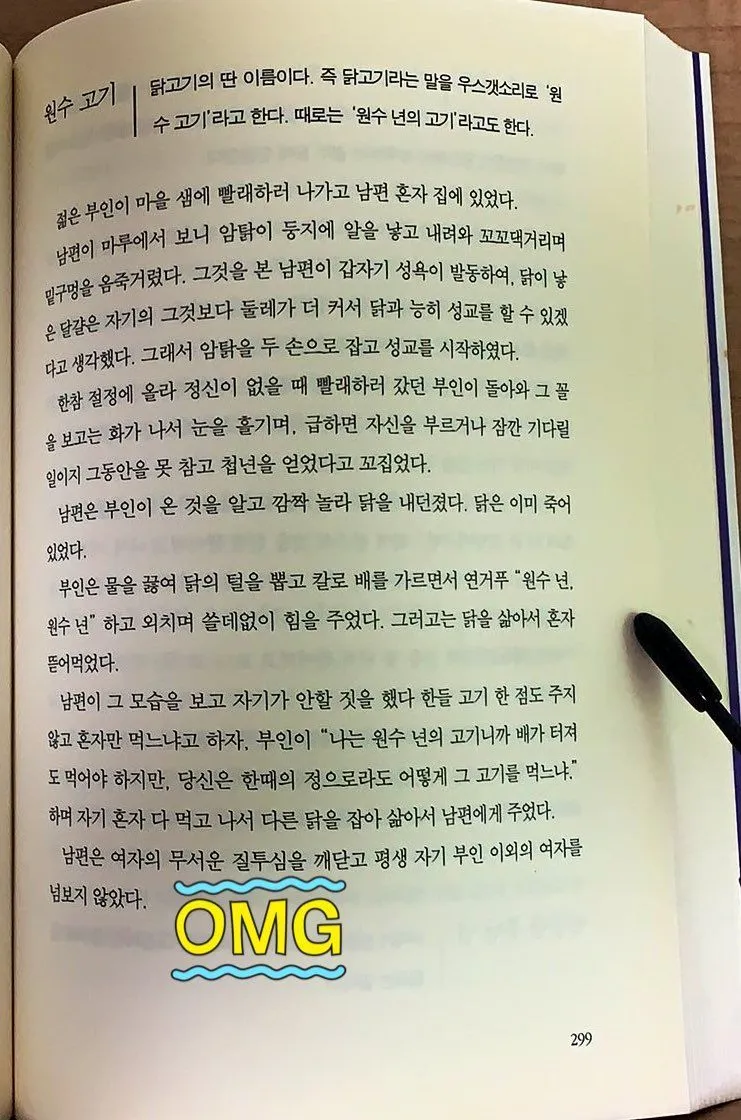 원수 고기
닭고기의 딴 이름이다. 즉 닭고기라는 말을 우스갯소리로 '원
수 고기'라고 한다. 때로는 '원수 년의 고기'라고도 한다.
젊은 부인이 마을 샘에 빨래하러 나가고 남편 혼자 집에 있었다.
남편이 마루에서 보니 암탉이 둥지에 알을 낳고 내려와 꼬꼬댁거리며
밑구멍을 옴죽거렸다. 그것을 본 남편이 갑자기 성욕이 발동하여, 닭이 낳
은 달걀은 자기의 그것보다 둘레가 더 커서 닭과 능히 성교를 할 수 있겠
다고 생각했다. 그래서 암탉을 두 손으로 잡고 성교를 시작하였다.
한참 절정에 올라 정신이 없을 때 빨래하러 갔던 부인이 돌아와 그 꼴
을 보고는 화가 나서 눈을 흘기며, 급하면 자신을 부르거나 잠깐 기다릴
일이지 그동안을 못 참고 첩년을 얻었다고 꼬집었다.
남편은 부인이 온 것을 알고 깜짝 놀라 닭을 내던졌다. 닭은 이미 죽어
있었다.
부인은 물을 끓여 닭의 털을 뽑고 칼로 배를 가르면서 연거푸 “원수 년,
원수 년” 하고 외치며 쓸데없이 힘을 주었다. 그러고는 닭을 삶아서 혼자
뜯어먹었다.
남편이 그 모습을 보고 자기가 안할 짓을 했다 한들 고기 한 점도 주지
않고 혼자만 먹느냐고 하자, 부인이 “나는 원수 년의 고기니까 배가 터져
도 먹어야 하지만, 당신은 한때의 정으로라도 어떻게 그 고기를 먹느냐.”
하며 자기 혼자 다 먹고 나서 다른 닭을 잡아 삶아서 남편에게 주었다.
남편은 여자의 무서운 질투심을 깨닫고 평생 자기 부인 이외의 여자를
넘보지 않았다.
OMG
299